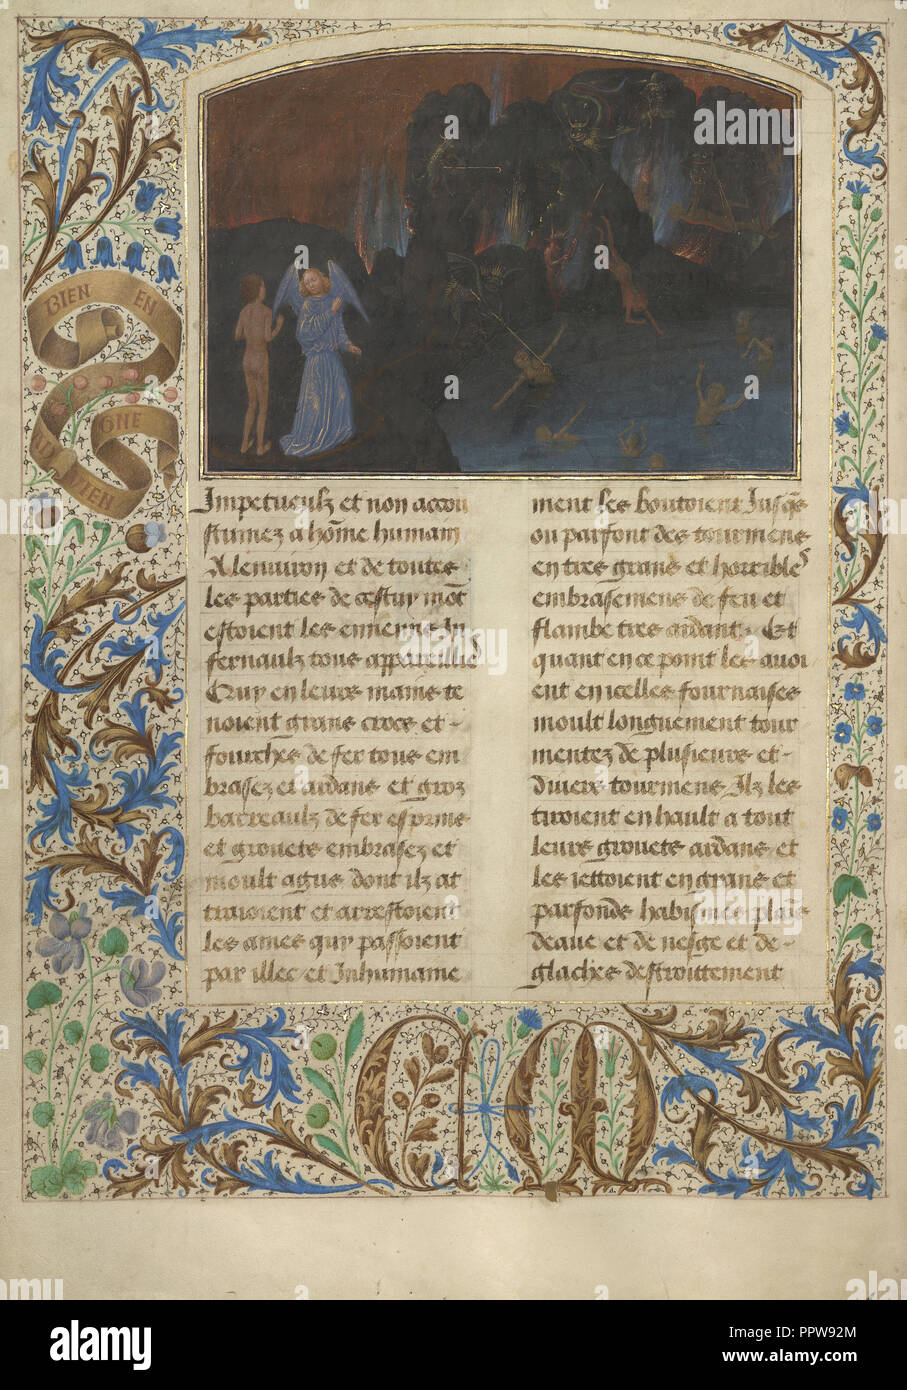 BIEN EN
AD
GNE
VIEN
Impetueulz et non accou
stumez a hom̄e humain
A lenuiron et de toutes
les parties de cestuy mōt
estoient les ennemis In
fernaulz tous appareilliēs
Quy en leurs mains te
noient grans crocs et
fourches de fer tous em
brasez et ardans et groz
barreaulz de fer esprins
et grouets embrasez et
moult agus dont ilz at
traioient et arrestoient
les ames quy passoient
par illec et Inhumaine
ment les boutoient Jusq̄s
ou parfont des tourmens
en tres grans et horribles
embrasemens de feu et
flambe tres ardant. Et
quant en ce point les auoi
ent en icelles fournaises
moult longuement tour
mentez de plusieurs et
diuers tourmens Ilz les
tiroient en hault a tout
leurs grouets ardans et
les iettoient en grans et
parfonds habismes plains
deaue et de neige et de
glaches destroittement
CM
alamy
Image ID: PPW92M
www.alamy.com